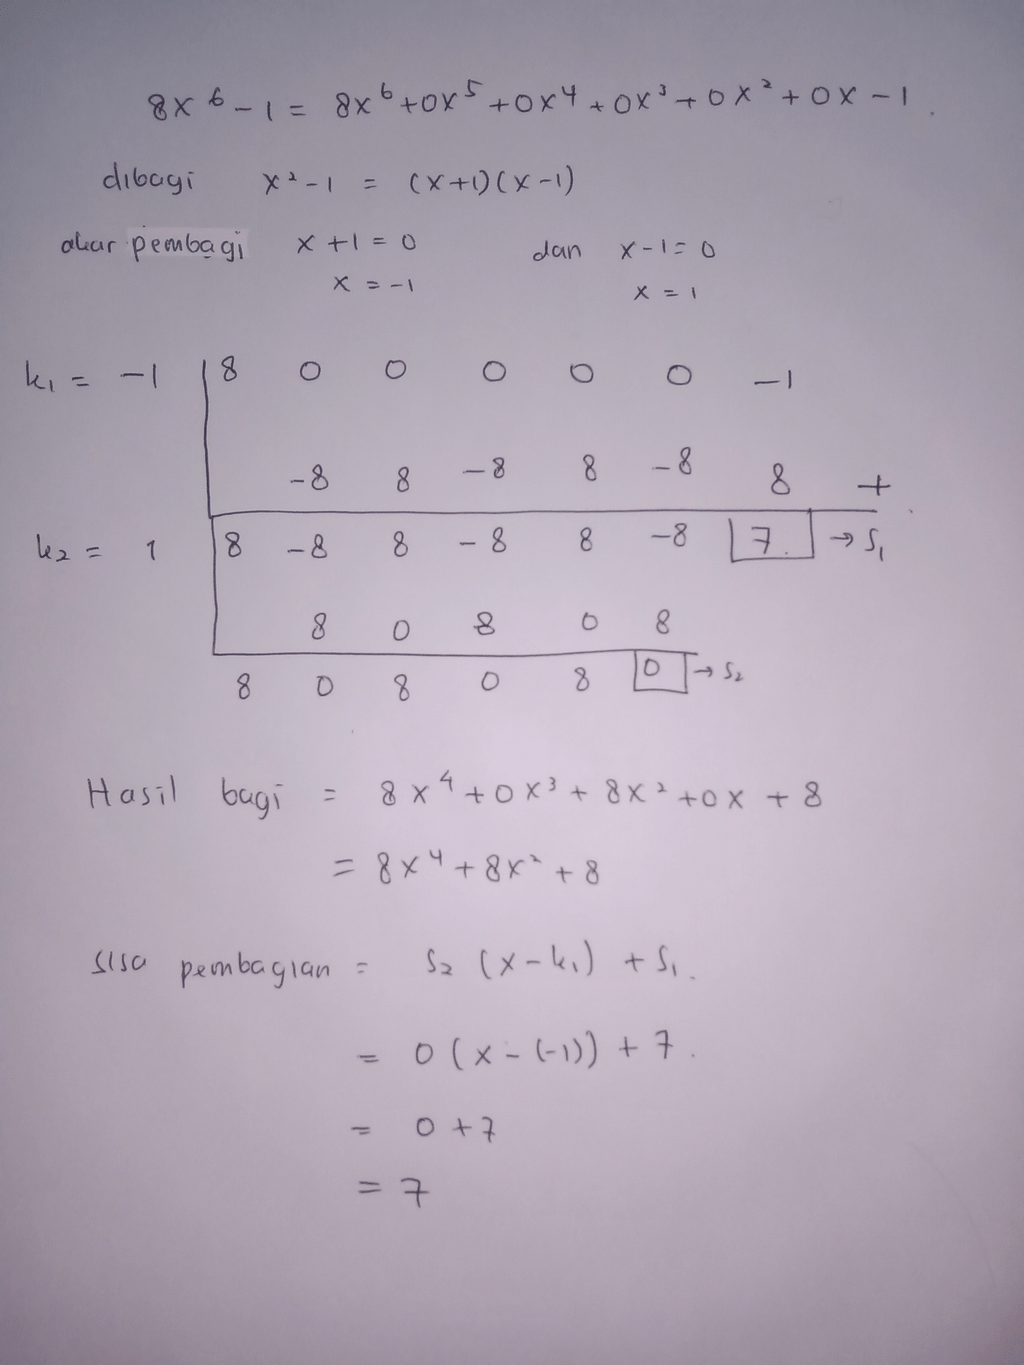 8x⁶ - 1 = 8x⁶ + 0x⁵ + 0x⁴ + 0x³ + 0x² + 0x - 1
dibagi x² - 1 = (x+1)(x-1)
akar pembagi x + 1 = 0 dan x - 1 = 0
x = -1 x = 1
k₁ = -1 8 0 0 0 0 0 -1
-8 8 -8 8 -8 8 +
k₂ = 1 8 -8 8 -8 8 -8 7 → S₁
8 0 8 0 8
8 0 8 0 8 0 → S₂
Hasil bagi = 8x⁴ + 0x³ + 8x² + 0x + 8
= 8x⁴ + 8x² + 8
sisa pembagian = S₂ (x - k₁) + S₁.
= 0 (x - (-1)) + 7.
= 0 + 7
= 7